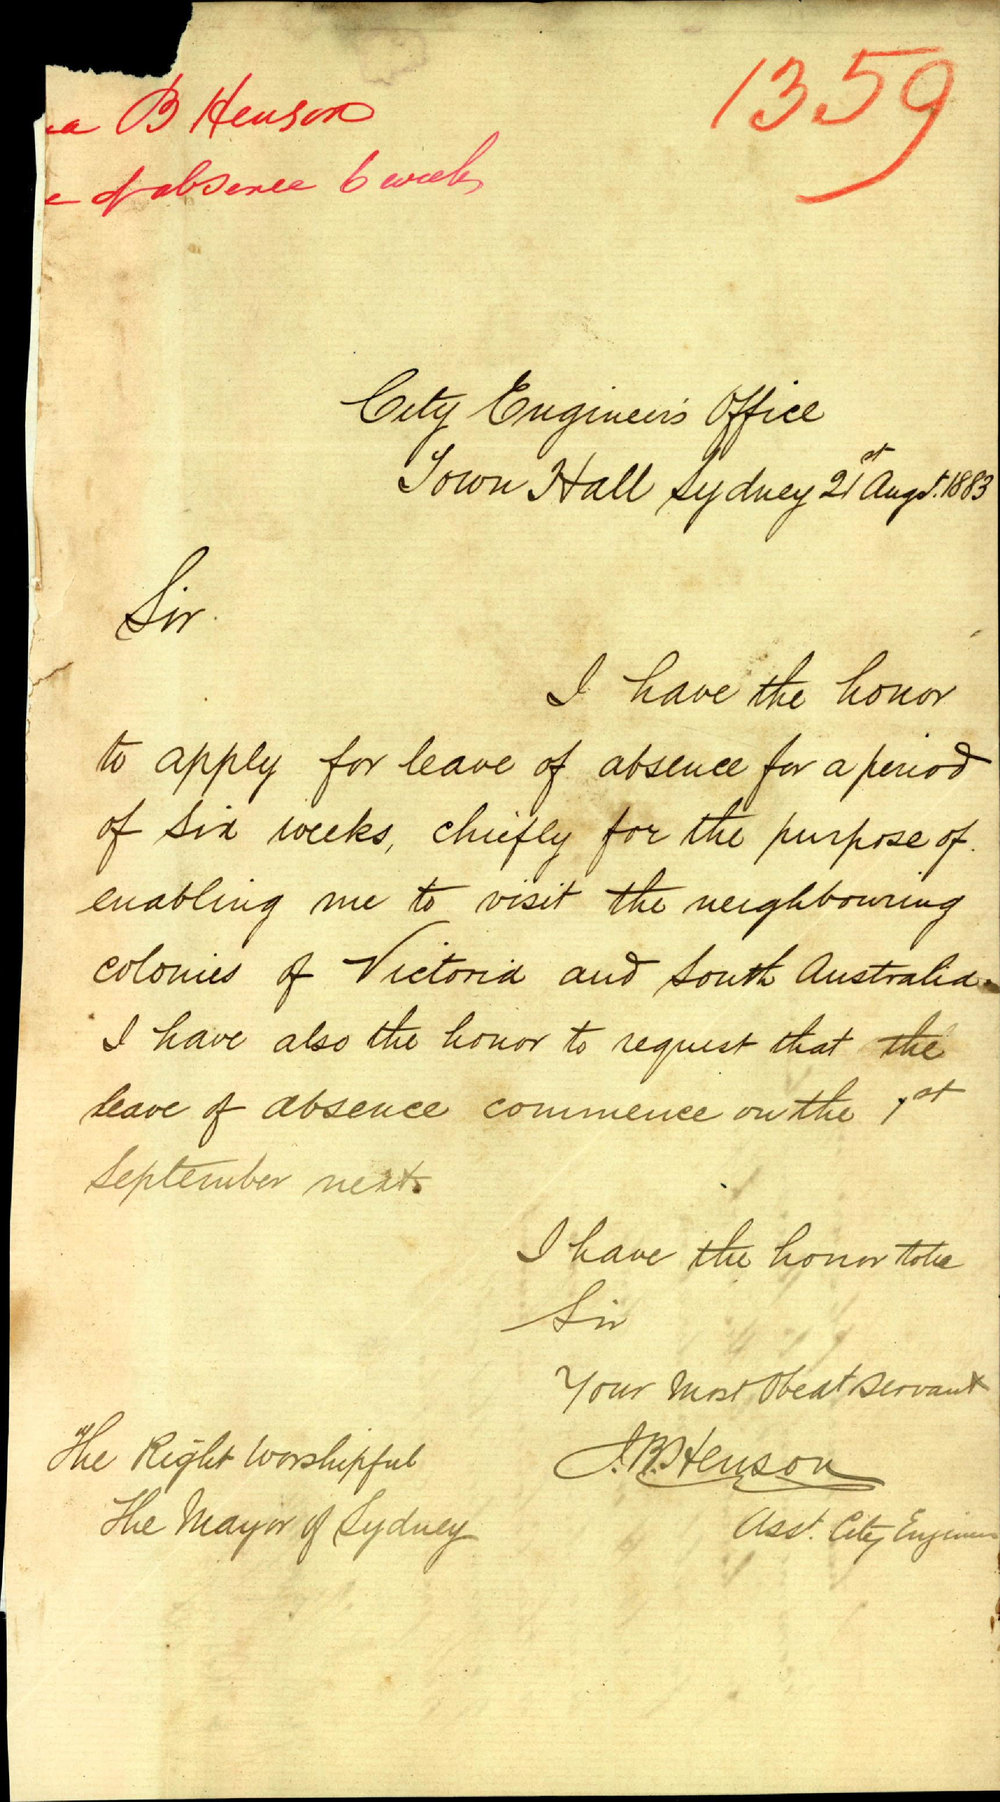 1359
B Henson
of absence 6 weeks
City Engineer's Office
Town Hall Sydney 21st Augst. 1883
Sir.
I have the honor
to apply for leave of absence for a period
of six weeks, chiefly for the purpose of
enabling me to visit the neighbouring
colonies of Victoria and South Australia.
I have also the honor to request that the
leave of absence commence on the 1st
September next.
I have the honor to be
Sir
Your Most Obedt servant
J.B. Henson
Asst. City Engineer
The Right Worshipful
The Mayor of Sydney